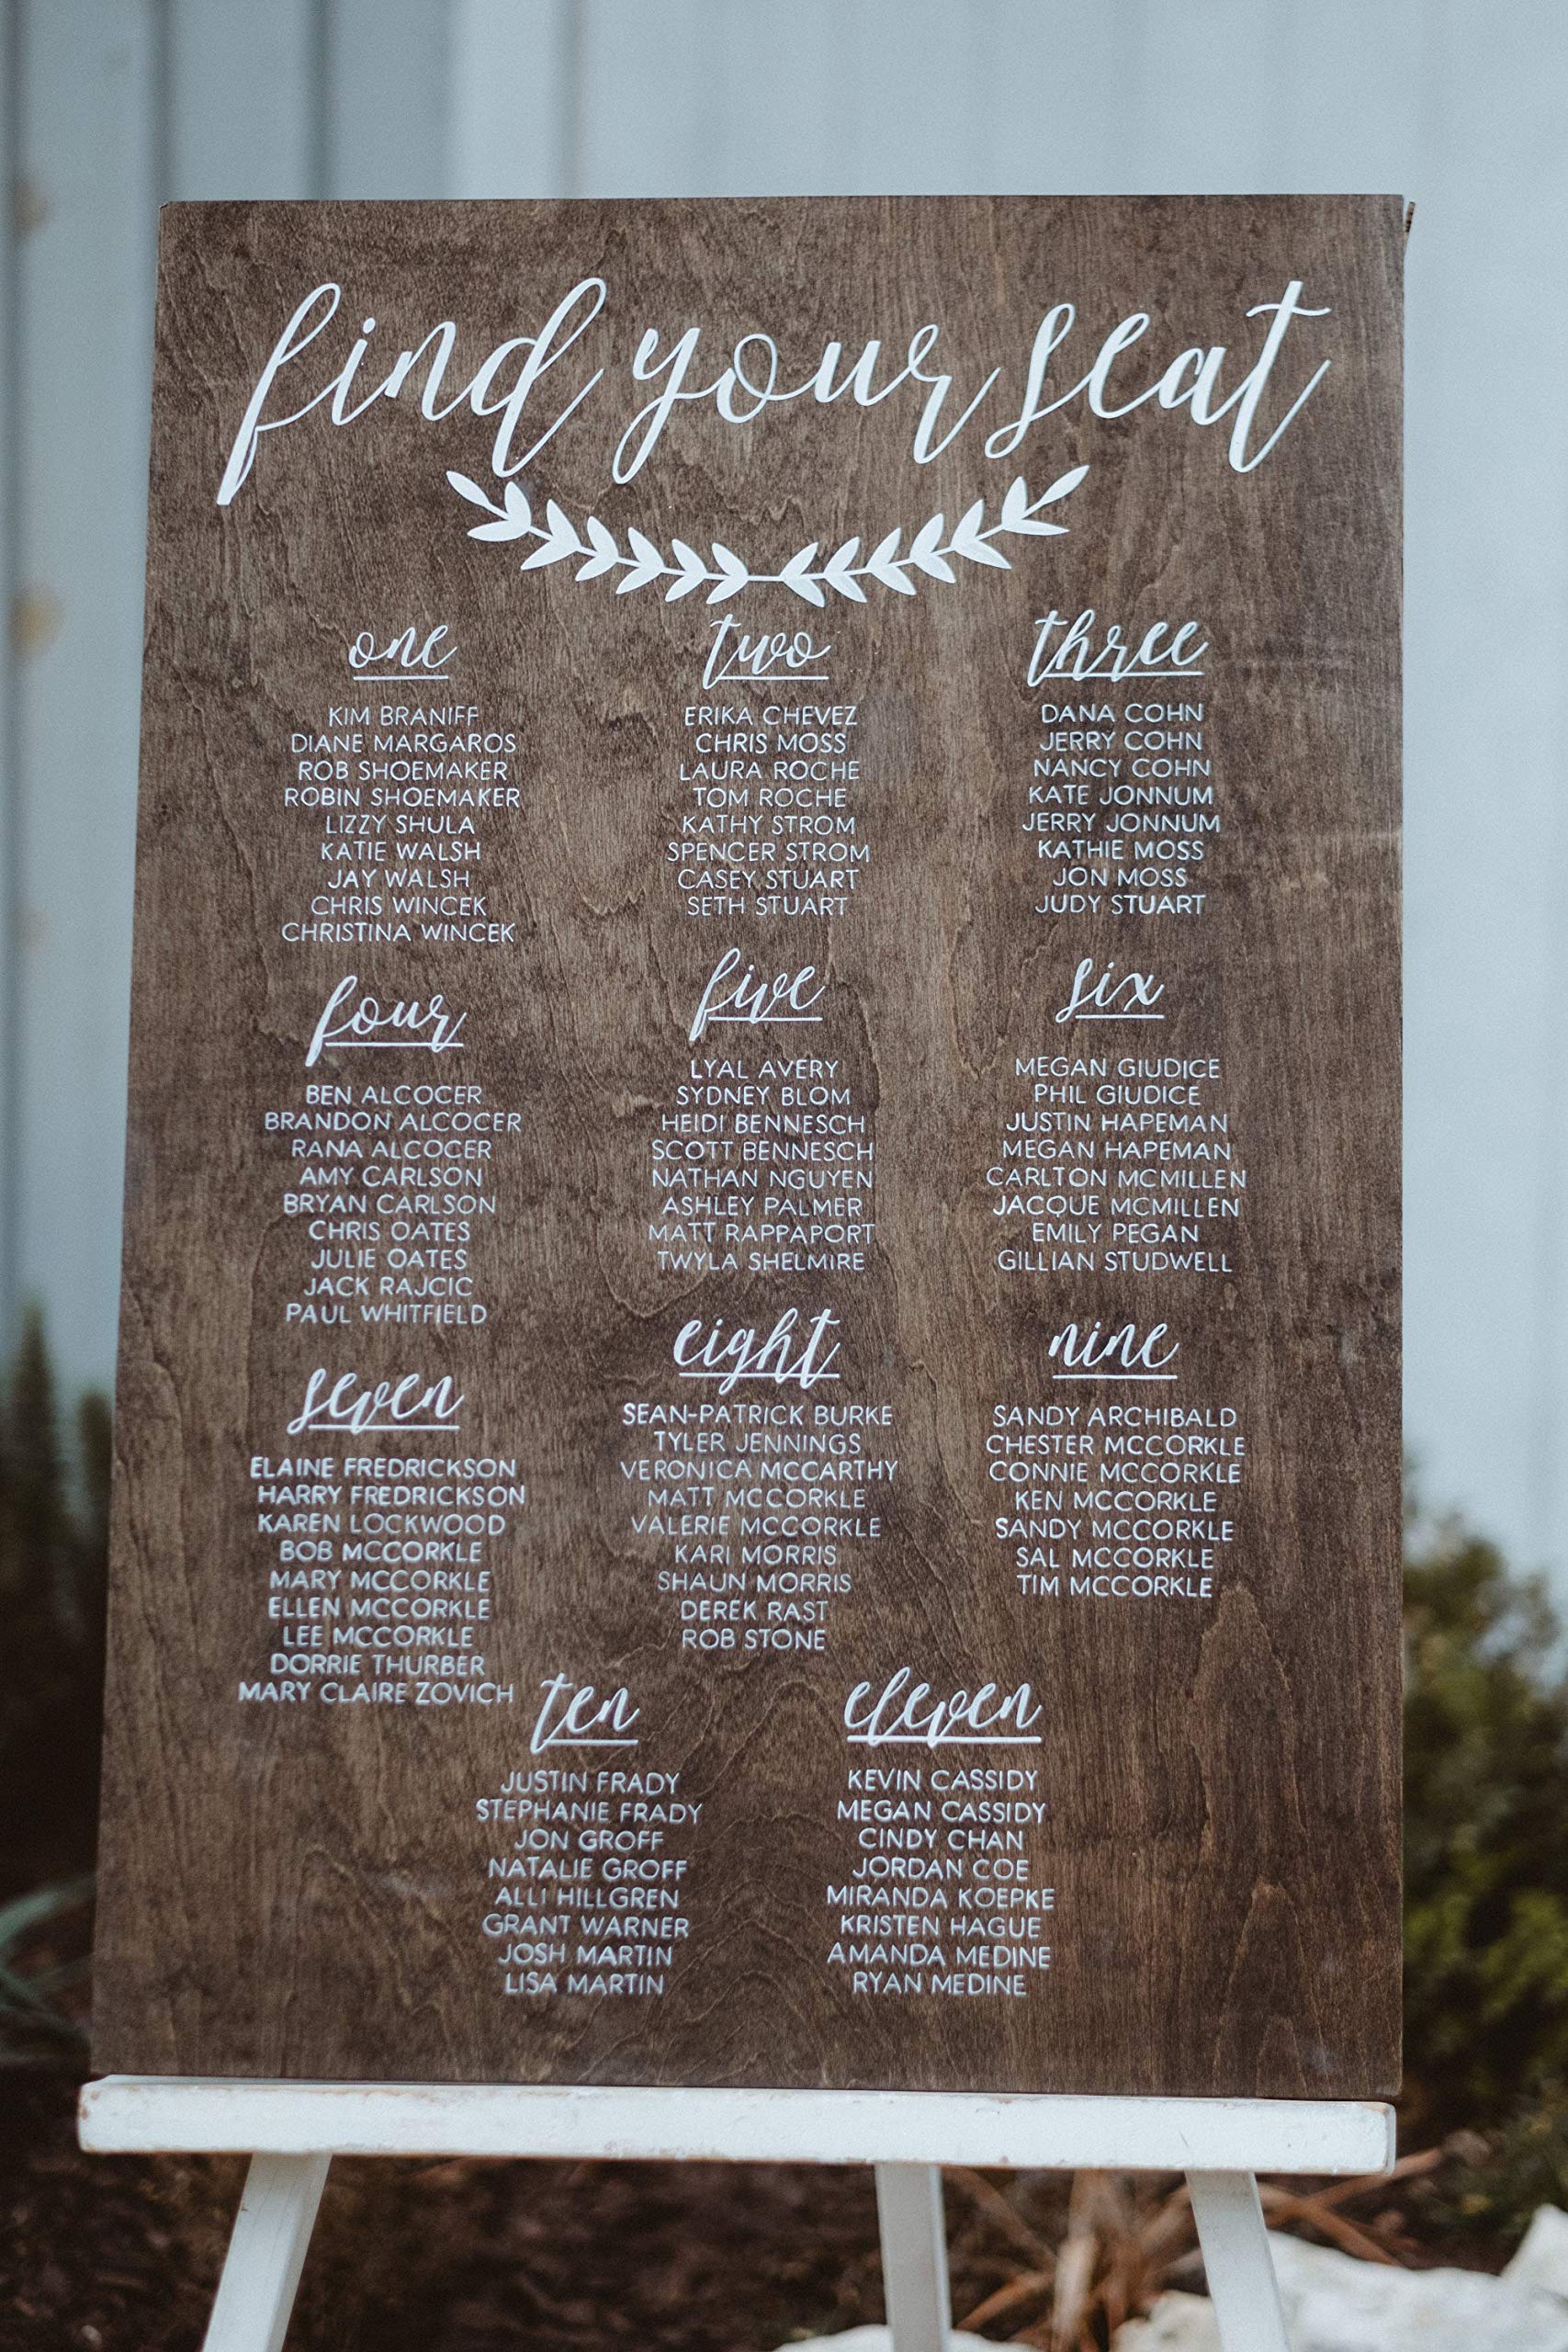 find your seat
one
KIM BRANIFF
DIANE MARGAROS
ROB SHOEMAKER
ROBIN SHOEMAKER
LIZZY SHULA
KATIE WALSH
JAY WALSH
CHRIS WINCEK
CHRISTINA WINCEK
two
ERIKA CHEVEZ
CHRIS MOSS
LAURA ROCHE
TOM ROCHE
KATHY STROM
SPENCER STROM
CASEY STUART
SETH STUART
three
DANA COHN
JERRY COHN
NANCY COHN
KATE JONNUM
JERRY JONNUM
KATHIE MOSS
JON MOSS
JUDY STUART
four
BEN ALCOCER
BRANDON ALCOCER
RANA ALCOCER
AMY CARLSON
BRYAN CARLSON
CHRIS OATES
JULIE OATES
JACK RAJCIC
PAUL WHITFIELD
five
LYAL AVERY
SYDNEY BLOM
HEIDI BENNESCH
SCOTT BENNESCH
NATHAN NGUYEN
ASHLEY PALMER
MATT RAPPAPORT
TWYLA SHELMIRE
six
MEGAN GIUDICE
PHIL GIUDICE
JUSTIN HAPEMAN
MEGAN HAPEMAN
CARLTON MCMILLEN
JACQUE MCMILLEN
EMILY PEGAN
GILLIAN STUDWELL
seven
ELAINE FREDRICKSON
HARRY FREDRICKSON
KAREN LOCKWOOD
BOB MCCORKLE
MARY MCCORKLE
ELLEN MCCORKLE
LEE MCCORKLE
DORRIE THURBER
MARY CLAIRE ZOVICH
eight
SEAN-PATRICK BURKE
TYLER JENNINGS
VERONICA MCCARTHY
MATT MCCORKLE
VALERIE MCCORKLE
KARI MORRIS
SHAUN MORRIS
DEREK RAST
ROB STONE
nine
SANDY ARCHIBALD
CHESTER MCCORKLE
CONNIE MCCORKLE
KEN MCCORKLE
SANDY MCCORKLE
SAL MCCORKLE
TIM MCCORKLE
ten
JUSTIN FRADY
STEPHANIE FRADY
JON GROFF
NATALIE GROFF
ALLI HILLGREN
GRANT WARNER
JOSH MARTIN
LISA MARTIN
eleven
KEVIN CASSIDY
MEGAN CASSIDY
CINDY CHAN
JORDAN COE
MIRANDA KOEPKE
KRISTEN HAGUE
AMANDA MEDINE
RYAN MEDINE